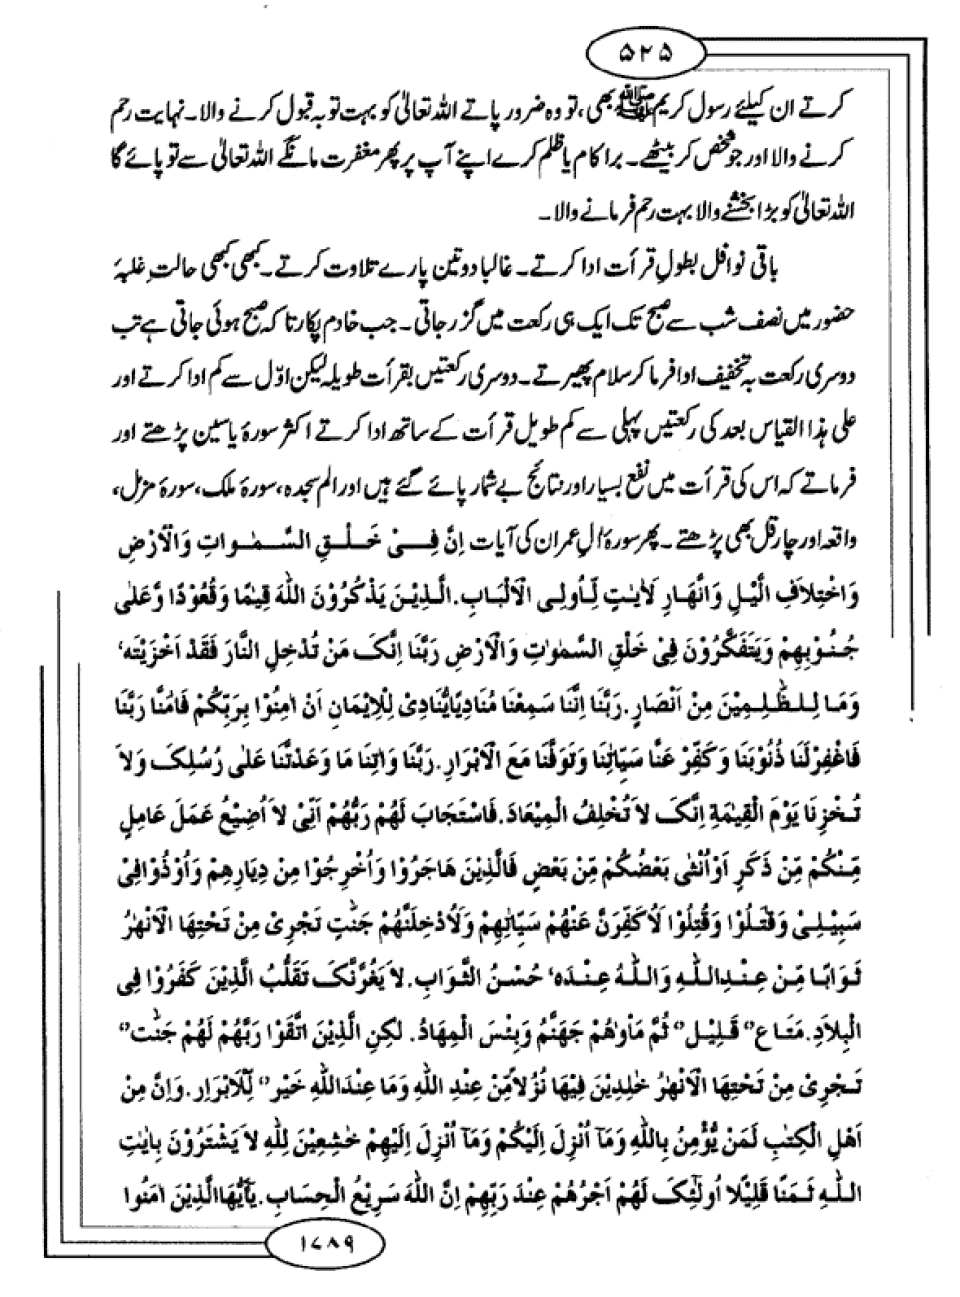 ۵۲۵
کرتے ان کیلئے رسول کریم ﷺ بھی، تو وہ ضرور پاتے اللہ تعالیٰ کو بہت توبہ قبول کرنے والا۔ نہایت رحم
کرنے والا اور جو شخص کر بیٹھے۔ برا کام یا ظلم کرے اپنے آپ پر پھر مغفرت مانگے اللہ تعالیٰ سے تو پائے گا
اللہ تعالیٰ کو بڑا بخشنے والا بہت رحم فرمانے والا۔
باقی نوافل بطولِ قرأت ادا کرتے۔ غالباً دو تین پارے تلاوت کرتے۔ کبھی کبھی حالتِ غلبۂ
حضور میں نصف شب سے صبح تک ایک ہی رکعت میں گزر جاتی۔ جب خادم پکارتا کہ صبح ہوئی جاتی ہے تب
دوسری رکعت بہ تخفیف ادا فرما کر سلام پھیرتے۔ دوسری رکعتیں بقرأت طویلہ لیکن اوّل سے کم ادا کرتے اور
علی ہذا القیاس بعد کی رکعتیں پہلی سے کم طویل قرأت کے ساتھ ادا کرتے اکثر سورۂ یاسین پڑھتے اور
فرماتے کہ اس کی قرأت میں نفع بسیار اور نتائج بے شمار پائے گئے ہیں اور الم سجدہ، سورۂ ملک، سورۂ مزمل،
واقعہ اور چار قل بھی پڑھتے۔ پھر سورۂ اٰل عمران کی آیات اِنَّ فِیْ خَلْقِ السَّمٰوَاتِ وَالْاَرْضِ
وَاخْتِلَافِ الَّیْلِ وَالنَّهَارِ لَاٰیٰتٍ لِّاُولِی الْاَلْبَابِ. الَّذِیْنَ یَذْکُرُوْنَ اللّٰهَ قِیٰمًا وَّقُعُوْدًا وَّعَلٰی
جُنُوْبِهِمْ وَیَتَفَکَّرُوْنَ فِیْ خَلْقِ السَّمٰوٰتِ وَالْاَرْضِ رَبَّنَا اِنَّکَ مَنْ تُدْخِلِ النَّارَ فَقَدْ اَخْزَیْتَه‘
وَمَا لِلظّٰلِمِیْنَ مِنْ اَنْصَارٍ. رَبَّنَا اِنَّنَا سَمِعْنَا مُنَادِیًا یُّنَادِیْ لِلْاِیْمَانِ اَنْ اٰمِنُوْا بِرَبِّکُمْ فَاٰمَنَّا رَبَّنَا
فَاغْفِرْلَنَا ذُنُوْبَنَا وَکَفِّرْ عَنَّا سَیِّاٰتِنَا وَتَوَفَّنَا مَعَ الْاَبْرَارِ. رَبَّنَا وَاٰتِنَا مَا وَعَدْتَّنَا عَلٰی رُسُلِکَ وَلَا
تُخْزِنَا یَوْمَ الْقِیٰمَةِ اِنَّکَ لَا تُخْلِفُ الْمِیْعَادَ. فَاسْتَجَابَ لَهُمْ رَبُّهُمْ اَنِّیْ لَا اُضِیْعُ عَمَلَ عَامِلٍ
مِّنْکُمْ مِّنْ ذَکَرٍ اَوْ اُنْثٰی بَعْضُکُمْ مِّنْ بَعْضٍ فَالَّذِیْنَ هَاجَرُوْا وَاُخْرِجُوْا مِنْ دِیَارِهِمْ وَاُوْذُوْا فِیْ
سَبِیْلِیْ وَقٰتَلُوْا وَقُتِلُوْا لَاُکَفِّرَنَّ عَنْهُمْ سَیِّاٰتِهِمْ وَلَاُدْخِلَنَّهُمْ جَنّٰتٍ تَجْرِیْ مِنْ تَحْتِهَا الْاَنْهٰرُ
ثَوَابًا مِّنْ عِنْدِاللّٰهِ وَاللّٰهُ عِنْدَه‘ حُسْنُ الثَّوَابِ. لَا یَغُرَّنَّکَ تَقَلُّبُ الَّذِیْنَ کَفَرُوْا فِی
الْبِلَادِ. مَتَاع’‘ قَلِیْل’‘ ثُمَّ مَاْوٰهُمْ جَهَنَّمُ وَبِئْسَ الْمِهَادُ. لٰکِنِ الَّذِیْنَ اتَّقَوْا رَبَّهُمْ لَهُمْ جَنّٰت’‘
تَجْرِیْ مِنْ تَحْتِهَا الْاَنْهٰرُ خٰلِدِیْنَ فِیْهَا نُزُلًامِّنْ عِنْدِ اللّٰهِ وَمَا عِنْدَاللّٰهِ خَیْر’‘ لِّلْاَبْرَارِ. وَاِنَّ مِنْ
اَهْلِ الْکِتٰبِ لَمَنْ یُّؤْمِنُ بِاللّٰهِ وَمَآ اُنْزِلَ اِلَیْکُمْ وَمَآ اُنْزِلَ اِلَیْهِمْ خٰشِعِیْنَ لِلّٰهِ لَا یَشْتَرُوْنَ بِاٰیٰتِ
اللّٰهِ ثَمَنًا قَلِیْلًا اُولٰٓئِکَ لَهُمْ اَجْرُهُمْ عِنْدَ رَبِّهِمْ اِنَّ اللّٰهَ سَرِیْعُ الْحِسَابِ. یٰٓاَیُّهَاالَّذِیْنَ اٰمَنُوا
۱۷۸۹